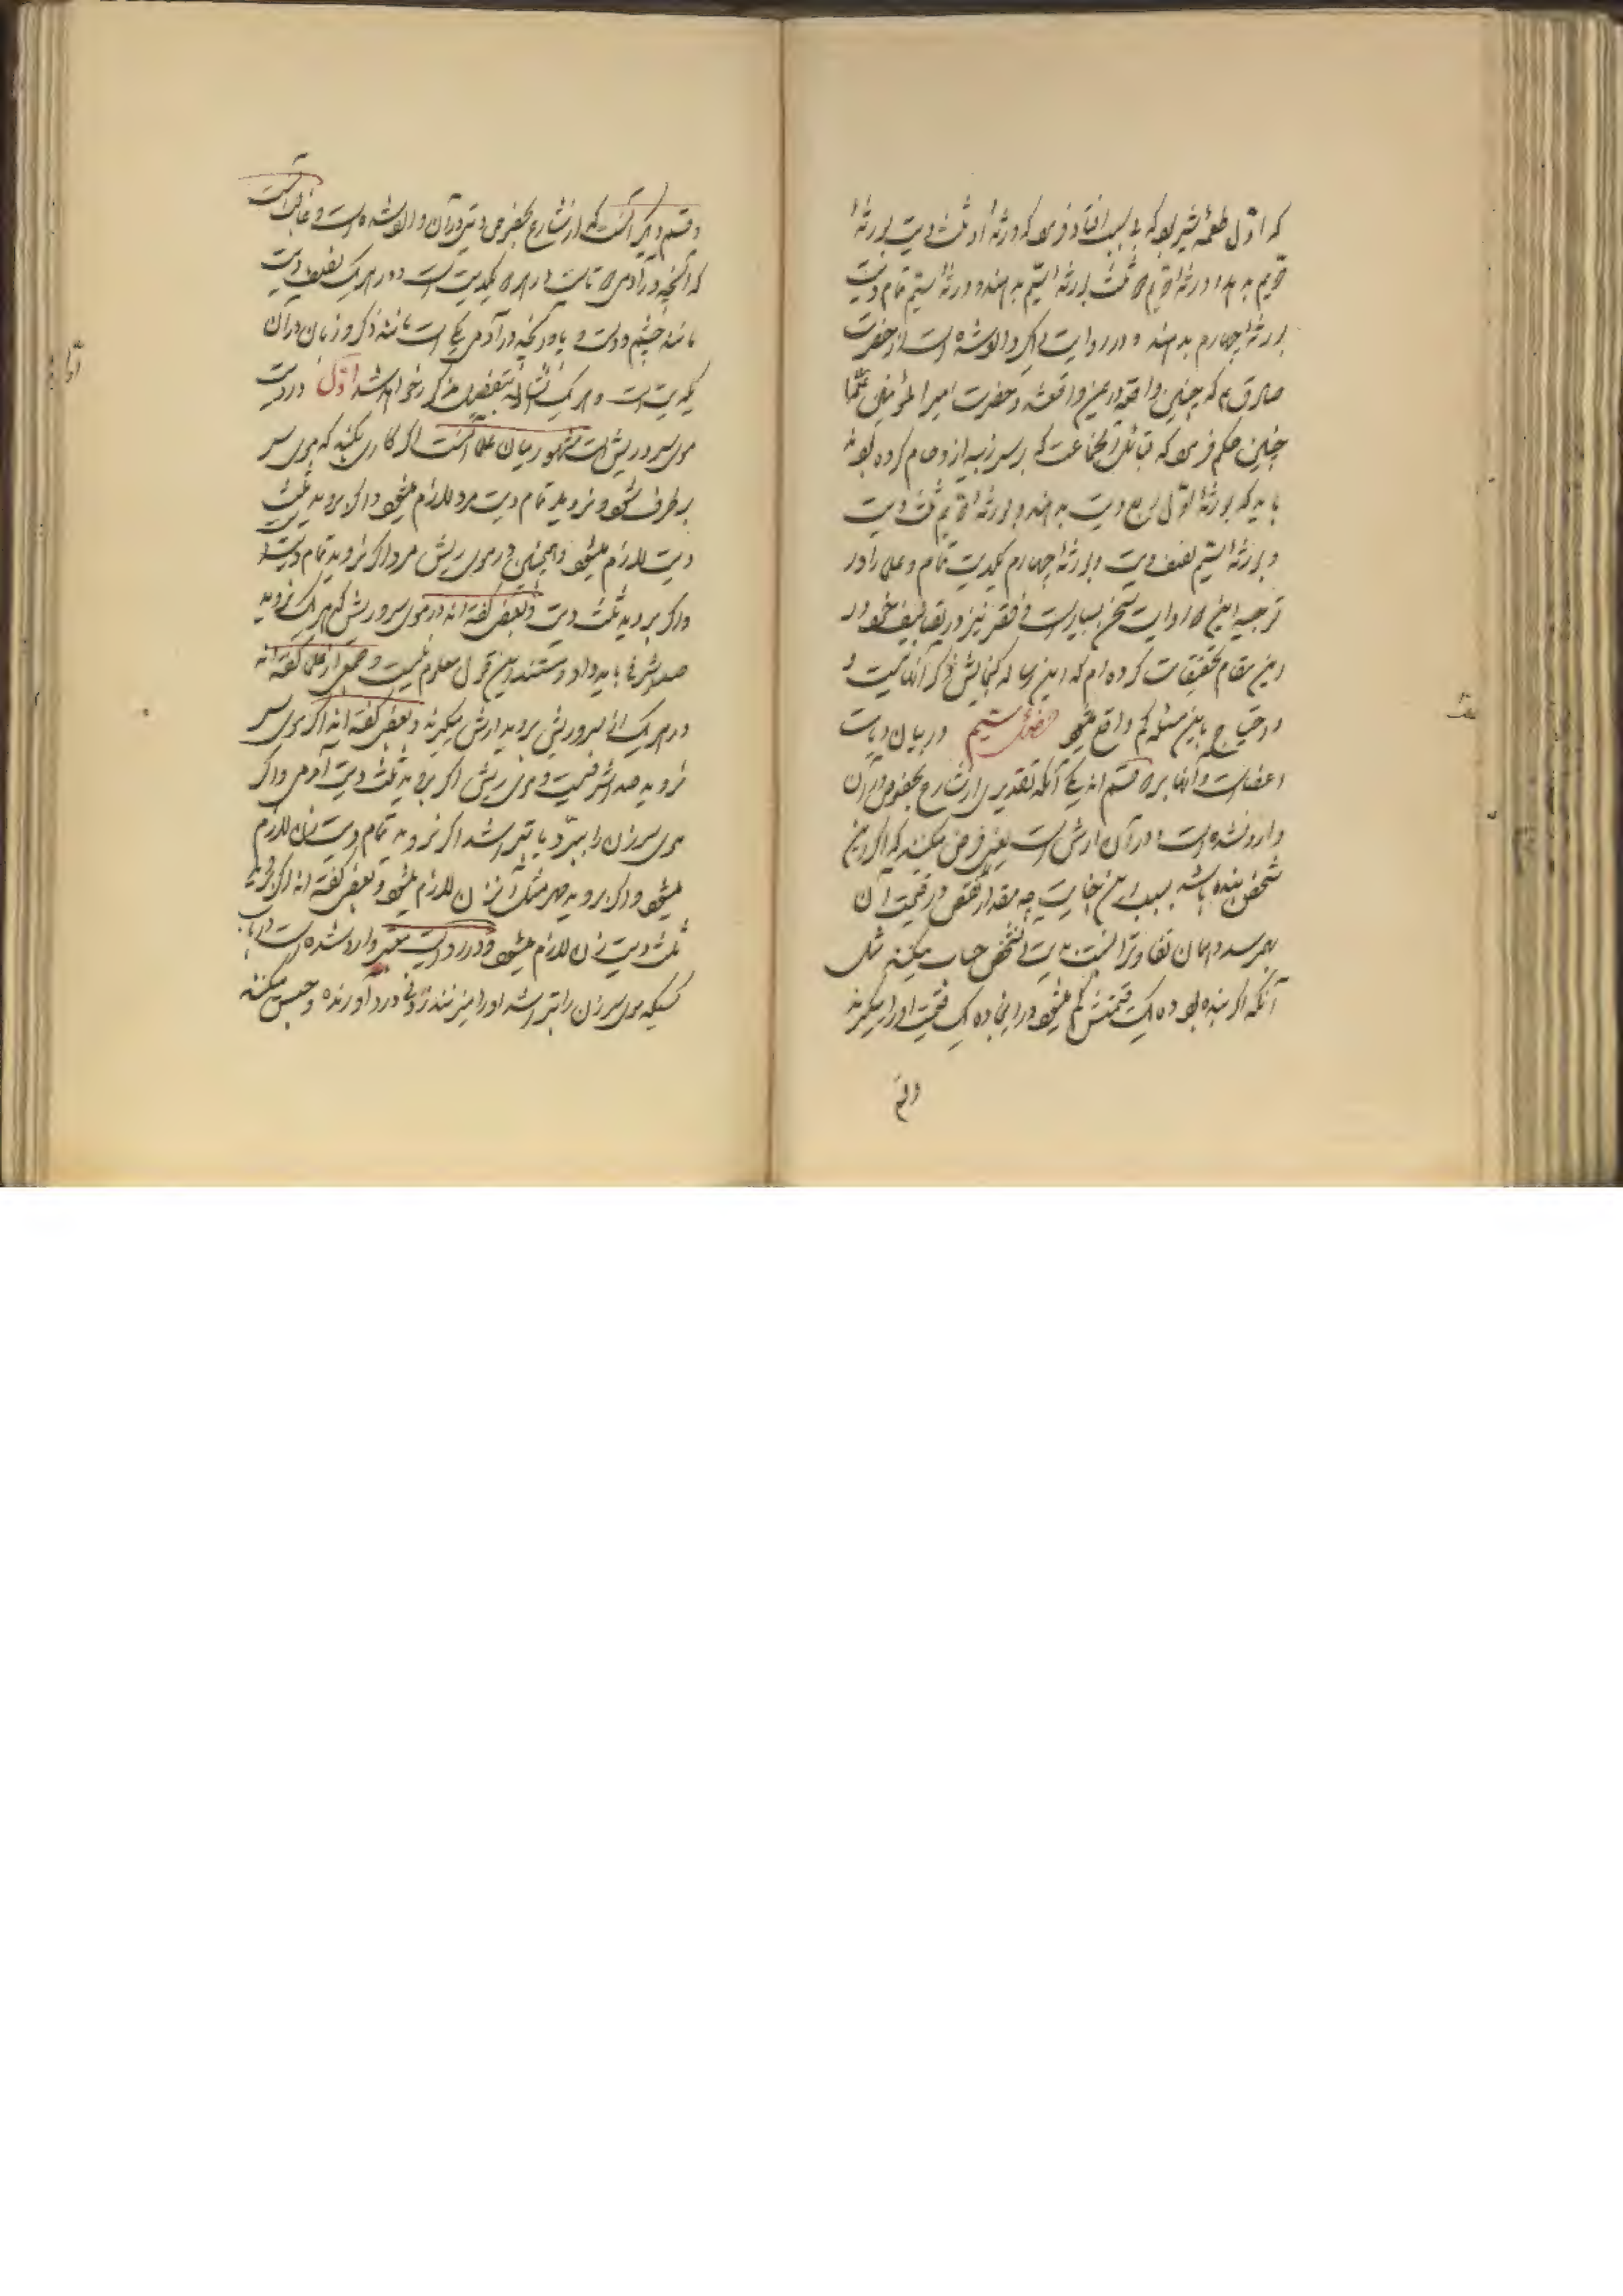 که اول طعمه شیر بود که بی سبب افتاد فرمود که ورثهٔ او ثلث دیت بورثهٔ
دویم بدهند و ورثهٔ دویم دو ثلث بورثهٔ سیم بدهند و ورثهٔ سیم تمام دیت
بورثهٔ چهارم بدهند و در روایت دیگر وارد شده است از حضرت
صادق ع که چنین واقعه در یمن واقع شد و حضرت امیر المؤمنین
چنین حکم فرمود که قبائل آنجماعت که بر سر زبیه ازدحام کرده بودند
باید که بورثهٔ اول ربع دیت بدهند و بورثهٔ دویم ثلث دیت
و بورثهٔ سیم نصف دیت و بورثهٔ چهارم یکدیت تمام و علما را در
توجیه این دو روایت سخن بسیار است و فقیر نیز در تصانیف خود در
این مقام تحقیقات کرده‌ام که این رساله گنجایش ذکر آنها نیست و
احتیاج باین مسئله کم واقع میشود فصل سیم در بیان دیات
اعضاست و آنها بر دو قسم‌اند یکی آنکه تقدیری از شارع بخصوص در آن
وارد نشده است و در آن ارش است یعنی فرض میکنند که اگر این
شخص بنده باشد بسبب این جنایت چه مقدار نقص در قیمت آن
بهم رسد و همان تفاوت را نسبت بدیت آنشخص حساب میکنند مثل
آنکه اگر بنده بود ده یک قیمتش کم میشود در اینجا ده یک قیمت او را میگیرند
و قسم
و قسم دیگر آنست که از شارع بخصوص دیتی در آن وارد شده است و غالب آنست
که آنچه در آدمی دو تاست در هر دو یکدیت است و در هر یک نصف دیت
مانند چشم و دست و پا و آنچه در آدمی یکی است مانند ذکر و زبان در آن
یکدیت است و هر یک از اینها بتفصیل مذکور خواهد شد اول در دیت
موی سر و ریش است مشهور میان علما آنست اگر کاری بکنند که موی سر
بر طرف شود و نروید تمام دیت مرد لازم میشود و اگر بروید ثلث
دیت لازم میشود و همچنین در موی ریش مرد اگر نروید تمام دیت
و اگر بروید ثلث دیت و بعضی گفته‌اند در موی سر و ریش که هر یک نروید
صد اشرفی باید داد و مستند این قول معلوم نیست و جمعی از علما گفته‌اند
در هر یک از سر و ریش بروید ارش میگیرند و بعضی گفته‌اند اگر موی سر
نروید صد اشرفیست و موی ریش اگر بروید ثلث دیت آدمی و اگر
موی سر زن را ببرد یا بتراشد اگر نروید تمام دیت زن لازم
میشود و اگر بروید مهر مثل آنزن لازم میشود و بعضی گفته‌اند اگر بروید
ثلث دیت زن لازم میشود و در روایت معتبر وارد شده است در باب
کسیکه موی سر زن را بتراشد او را میزنند زدنی درد آورنده و حبس میکنند